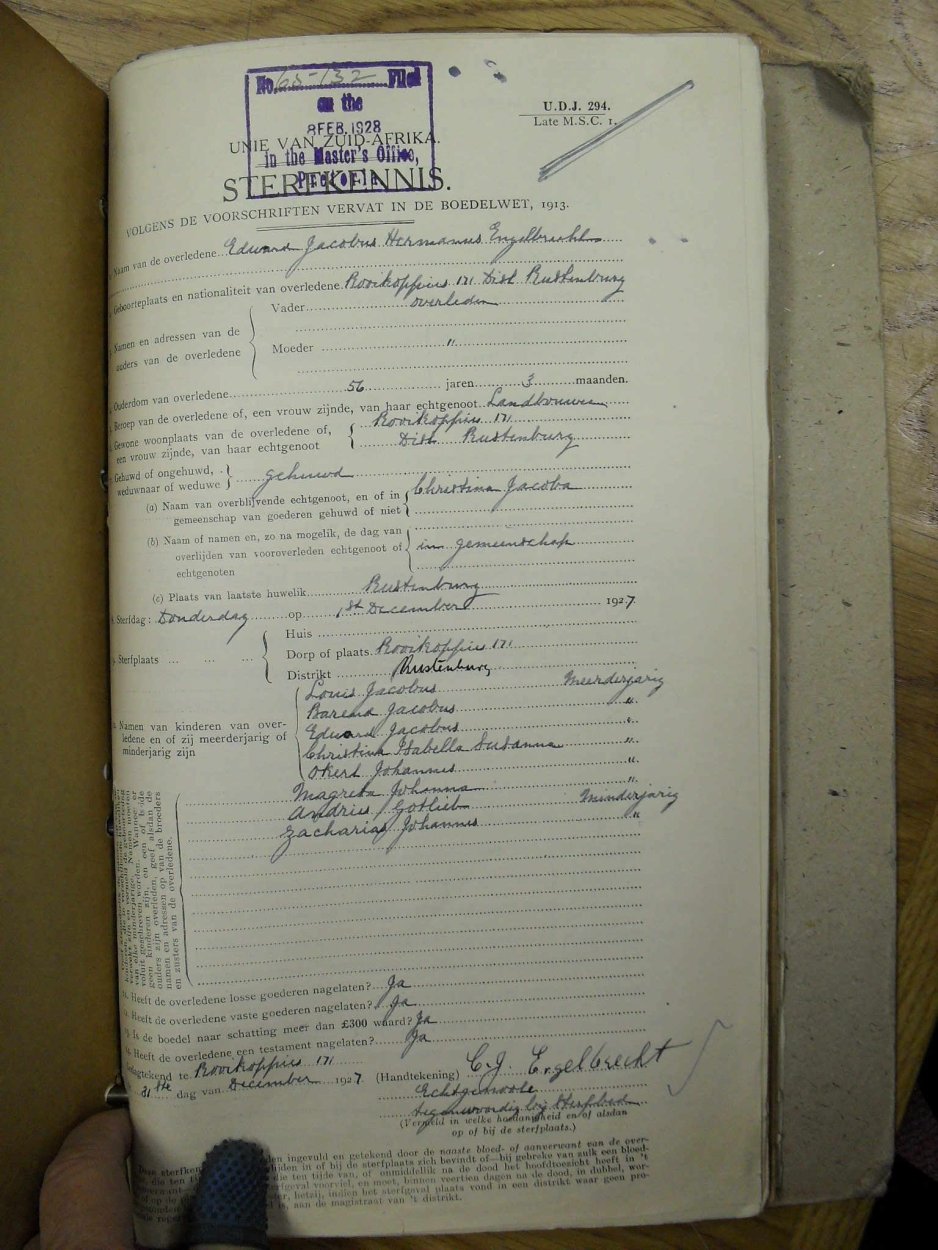 No. 65132 Filed
on the
8 FEB. 1928
in the Master's Office,
Pretoria
U.D.J. 294.
Late M.S.C. 1.
UNIE VAN ZUID-AFRIKA.
STERFKENNIS.
VOLGENS DE VOORSCHRIFTEN VERVAT IN DE BOEDELWET, 1913.
Naam van de overledene Edward Jacobus Hermanus Engelbrecht
Geboorteplaats en nationaliteit van overledene Rooikoppies 171 Dist. Rustenburg
Namen en adressen van de ouders van de overledene
Vader overleden
Moeder "
Ouderdom van overledene 56 jaren 3 maanden.
Beroep van de overledene of, een vrouw zijnde, van haar echtgenoot Landbouwer
Gewone woonplaats van de overledene of, een vrouw zijnde, van haar echtgenoot
Rooikoppies 171
Dist. Rustenburg
Gehuwd of ongehuwd, weduwnaar of weduwe gehuwd
(a) Naam van overblijvende echtgenoot, en of in gemeenschap van goederen gehuwd of niet Christina Jacoba
(b) Naam of namen en, zo na mogelik, de dag van overlijden van vooroverleden echtgenoot of echtgenoten in gemeenschap
(c) Plaats van laatste huwelik Rustenburg
Sterfdag: Donderdag op 1st December 1927
9. Sterfplaats ... ... ...
Huis
Dorp of plaats Rooikoppies 171
Distrikt Rustenburg
Namen van kinderen van overledene en of zij meerderjarig of minderjarig zijn
Louis Jacobus Meerderjarig
Barend Jacobus "
Eduard Jacobus "
Christina Isabella Susanna "
Okert Johannis "
Magreta Johanna "
Andries Gotlieb Minderjarig
Zacharias Johannis "
van elke minderjarige. Namen moeten
voluit geschreven worden. Wanneer er
geen kinderen zijn, en een of beide
ouders zijn overleden, geef alsdan de
namen en adressen op van de broeders
en zusters van de overledene.
11. Heeft de overledene losse goederen nagelaten? Ja
12. Heeft de overledene vaste goederen nagelaten? Ja
13. Is de boedel naar schatting meer dan £300 waard? Ja
14. Heeft de overledene een testament nagelaten? Ja
Gedagtekend te Rooikoppies 171
31ste dag van December 1927
(Handtekening) C. J. Engelbrecht
Echtgenoote
tegenwoordig bij sterfbed
(Vermeld in welke hoedanigheid en of alsdan
op of bij de sterfplaats.)
ingevuld en getekend door de naaste bloed- of aanverwant van de over-
in of bij de sterfplaats zich bevindt of—bij gebreke van zulk een bloed-
die ten tijde van, of onmiddellik na de dood het hoofdtoezicht heeft in 't
sterfgeval voorviel, en moet, binnen veertien dagen na de dood, in dubbel, wor-
hetzij, indien het sterfgeval plaats vond in een distrikt waar geen
is, aan de magistraat van 't distrikt.